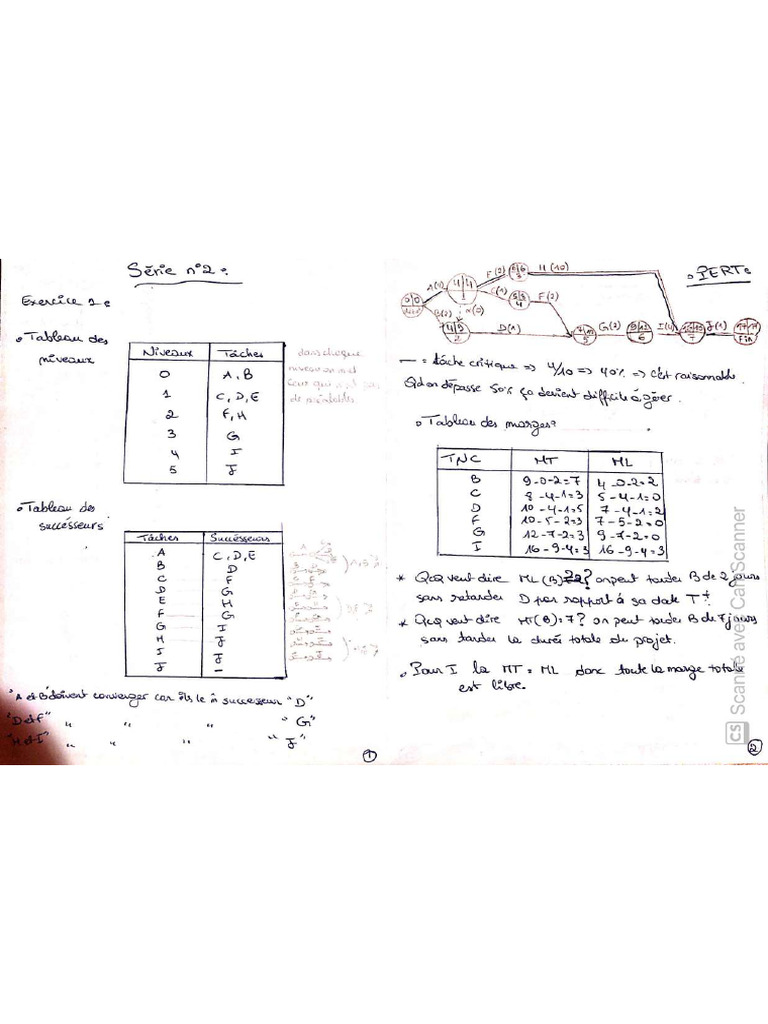 Série n°2 :
Exercice 2 :
• Tableau des
niveaux
Niveaux Tâches
0 A, B
1 C, D, E
2 F, H
3 G
4 I
5 J
dans chaque
niveau on met
ceux qui n'ont pas
de préalables
• Tableau des
succésseurs
Tâches Succésseurs
A C, D, E
B D
C F
D G
E H
F G
G I
H J
I J
J –
"A et B doivent converger car ils le m̂ successeur "D"
"D et F" " " " "G"
"H et I" " " " "J"
1
• PERT :
A(4)
B(2)
E(2)
C(1)
H(10)
F(2)
D(1)
G(2)
J(1)
0 0
4 4
1
2
4
5
9 12
6
7
17 17
Fin
— = tâche critique => 4/10 => 40% => c'est raisonnable.
Qd on dépasse 50% ça devient difficile à gérer.
• Tableau des marges :
TNC MT ML
B 9-0-2=7 4-0-2=2
C 8-4-1=3 5-4-1=0
D 10-4-1=5 7-4-1=2
F 10-5-2=3 7-5-2=0
G 12-7-2=3 9-7-2=0
I 16-9-4=3 16-9-4=3
* Qcq veut dire ML(B) ? on peut tarder B de 2 jours
sans retarder D par rapport à sa date T+
* Qcq veut dire MT(B)=7? on peut tarder B de 7 jours
sans tarder la durée totale du projet.
• Pour I la MT = ML donc toute la marge totale
est libre.
2
CS Scanné avec CamScanner